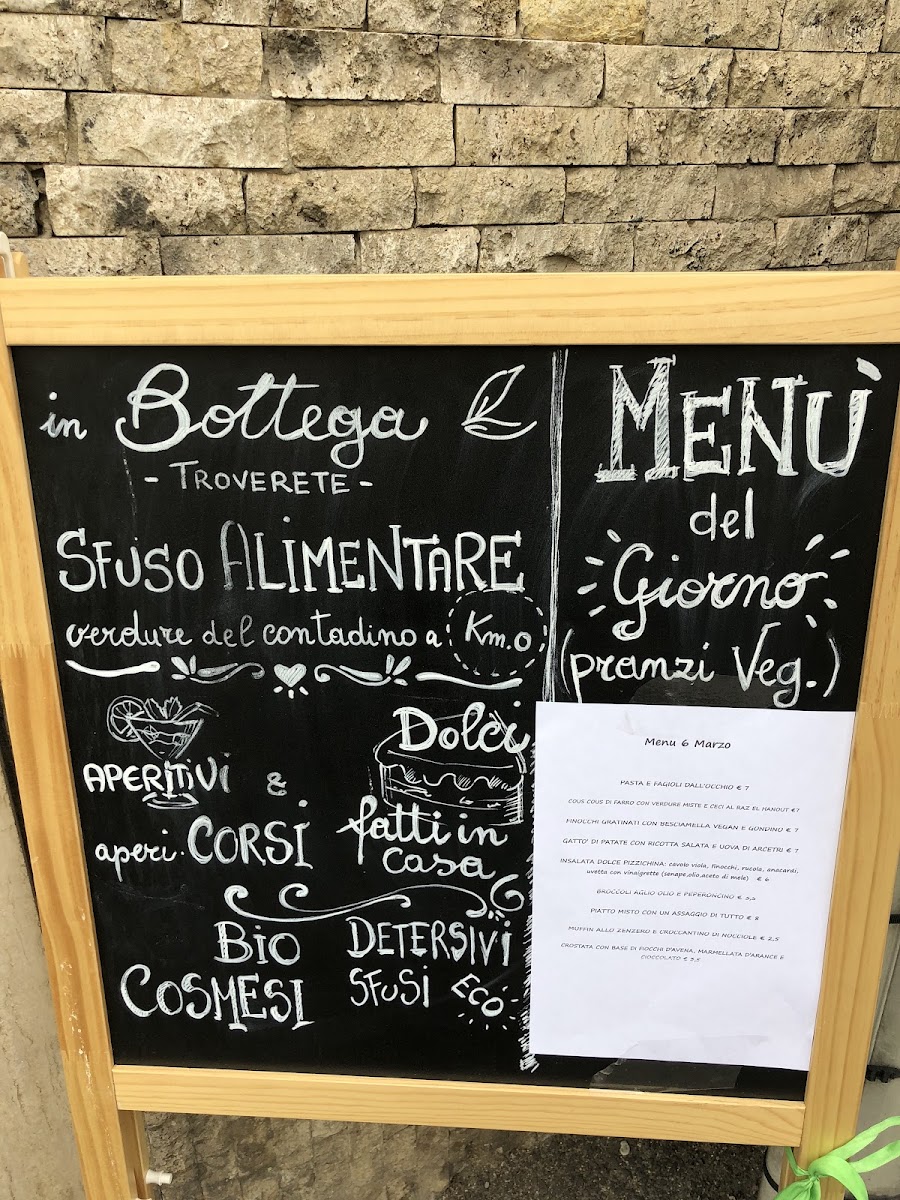 in Bottega
- TROVERETE -
SFUSO ALIMENTARE
verdure del contadino a Km.0
APERITIVI &
aperi. CORSI
Dolci
fatti in
casa
BIO
COSMESI
DETERSIVI
SFUSI ECO
MENÙ
del
Giorno
(pranzi Veg.)
Menu 6 Marzo
PASTA E FAGIOLI DALL'OCCHIO € 7
COUS COUS DI FARRO CON VERDURE MISTE E CECI AL RAZ EL HANOUT €7
FINOCCHI GRATINATI CON BESCIAMELLA VEGAN E GONDINO € 7
GATTO' DI PATATE CON RICOTTA SALATA E UOVA DI ARCETRI € 7
INSALATA DOLCE PIZZICHINA: cavolo viola, finocchi, rucola, anacardi,
uvetta con vinaigrette (senape,olio,aceto di mele) € 6
BROCCOLI AGLIO OLIO E PEPERONCINO € 5,5
PIATTO MISTO CON UN ASSAGGIO DI TUTTO € 8
MUFFIN ALLO ZENZERO E CROCCANTINO DI NOCCIOLE € 2,5
CROSTATA CON BASE DI FIOCCHI D'AVENA, MARMELLATA D'ARANCE E
CIOCCOLATO € 3,5